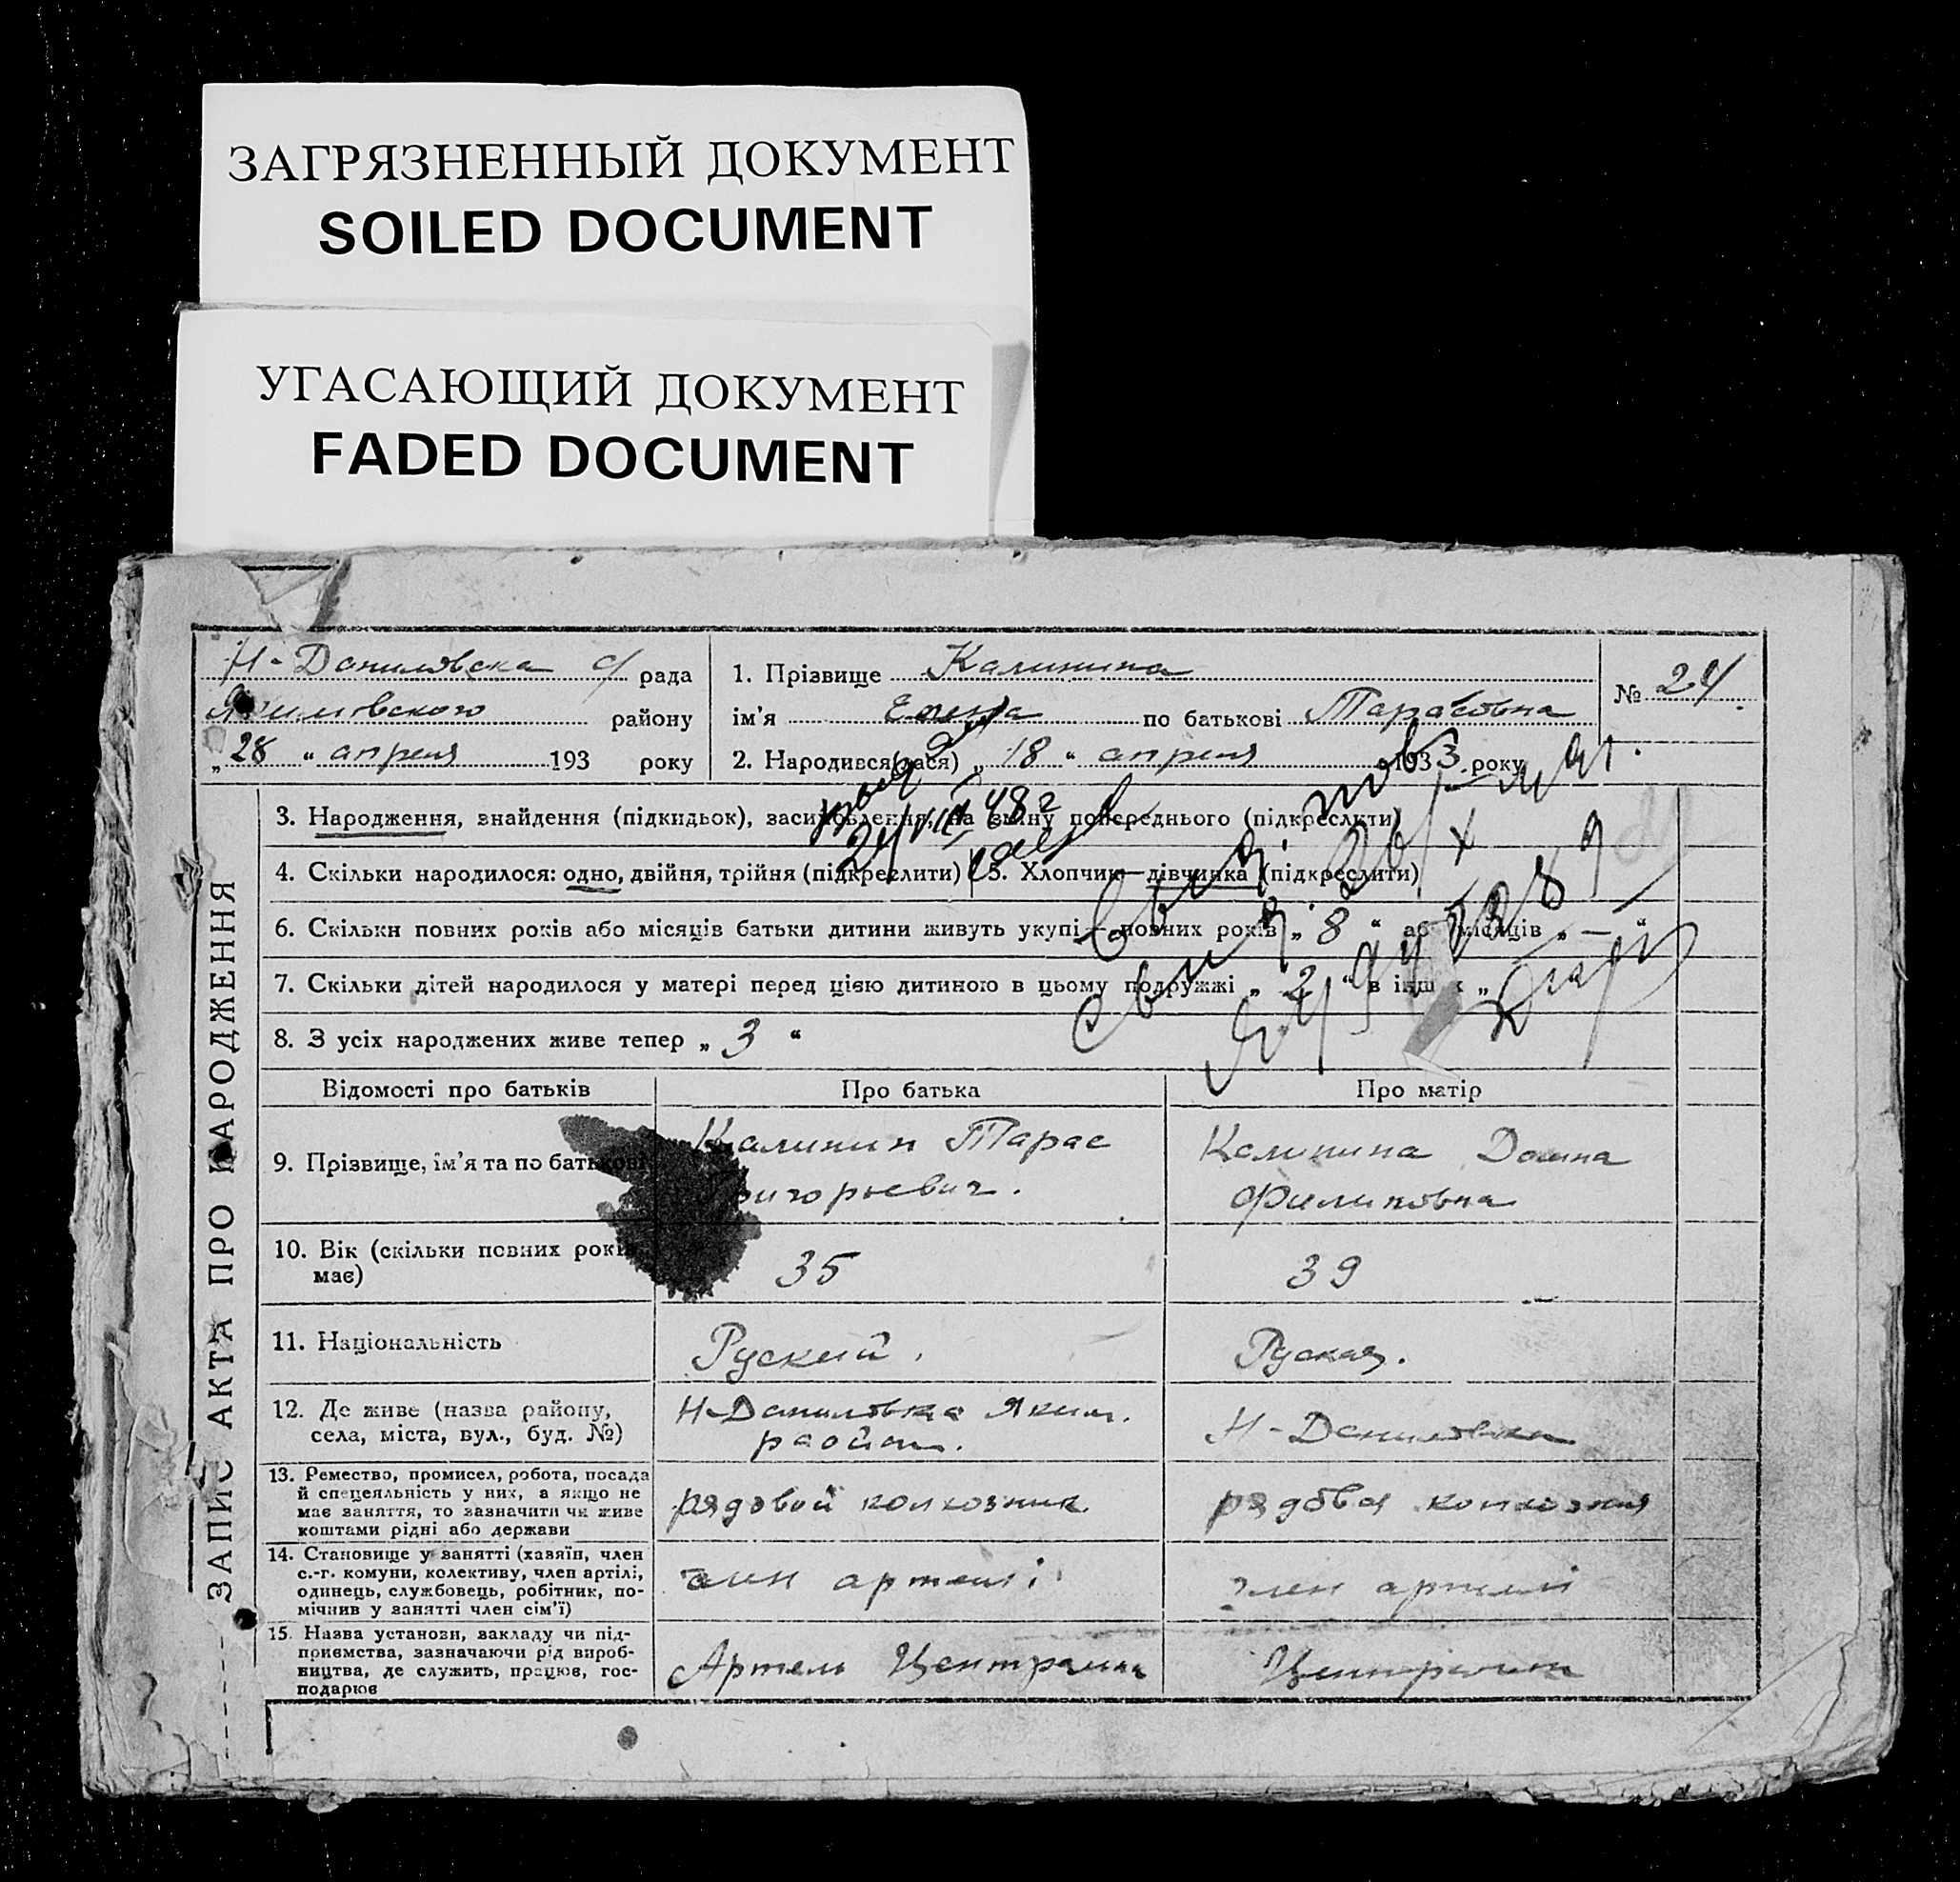 ЗАГРЯЗНЕННЫЙ ДОКУМЕНТ
SOILED DOCUMENT
УГАСАЮЩИЙ ДОКУМЕНТ
FADED DOCUMENT
Н-Даниловска с/ рада
Якимовского району
„28“ апреля 193 року
1. Прізвище Калинина
ім’я Елена по батькові Тарасовна
2. Народився(лася) „18“ апреля 1933 року
№ 24
ЗАПИС АКТА ПРО НАРОДЖЕННЯ
3. Народження, знайдення (підкидьок), засиновлення, на зміну попереднього (підкреслити)
4. Скільки народилося: одно, двійня, трійня (підкреслити) 5. Хлопчик—дівчинка (підкреслити)
6. Скільки повних років або місяців батьки дитини живуть укупі—повних років „8“ або місяців „—“
7. Скільки дітей народилося у матері перед цією дитиною в цьому подружжі „2“ в інших „
8. З усіх народжених живе тепер „3“
48 г
Свид. пов
Свид.
Відомості про батьків Про батька Про матір
9. Прізвище, ім’я та по батькові
Калинин Тарас
Григорьевич.
Калинина Домна
Филиповна
10. Вік (скільки повних років
має)
35
39
11. Національність
Руский.
Руская.
12. Де живе (назва району,
села, міста, вул., буд. №)
Н-Даниловка Яким.
район.
Н-Даниловка
13. Ремество, промисел, робота, посада
й спецеяльність у них, а якщо не
має заняття, то зазначити чи живе
коштами рідні або держави
рядовой колхозник
рядовая колхозния
14. Становище у занятті (хазяїн, член
с.-г. комуни, колективу, член артілі,
одинець, службовець, робітник, по-
мічнив у занятті член сім’ї)
член артелі
член артелі
15. Назва установи, закладу чи під-
приємства, зазначаючи рід вироб-
ництва, де служить, працює, гос-
подарює
Артель Централна
Централна